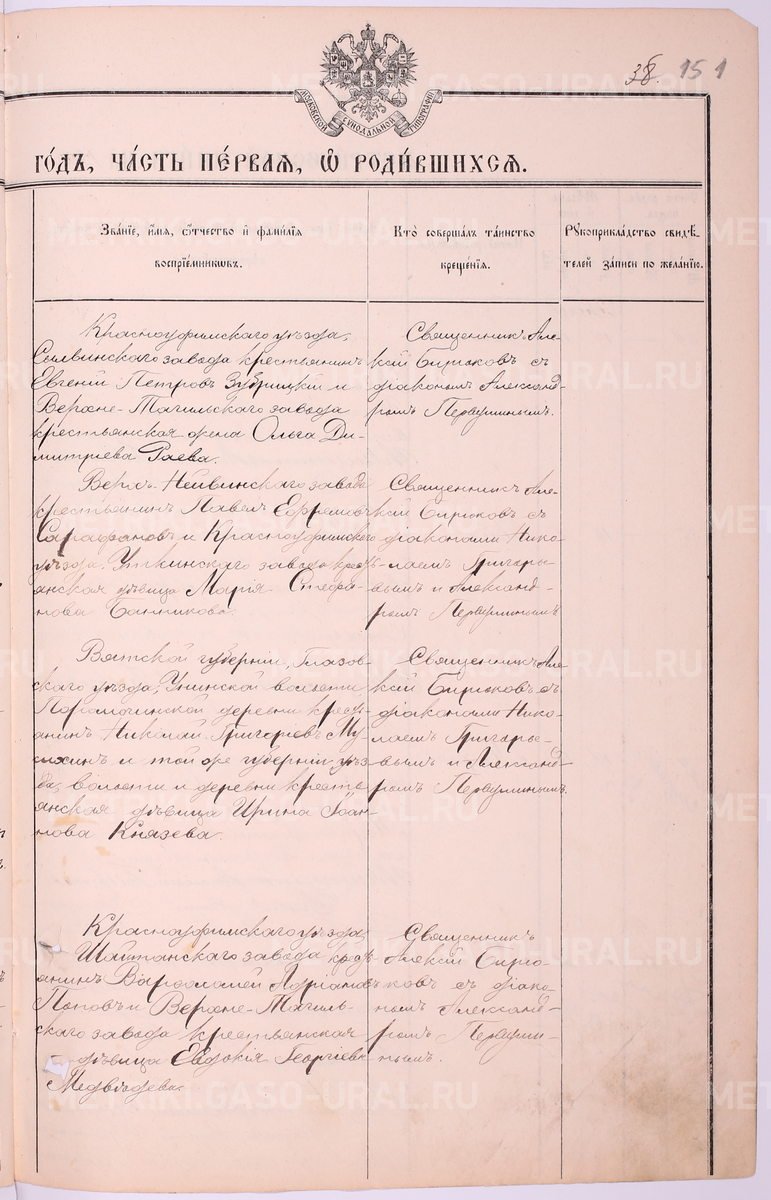 38. 151
МОСКОВСКОЙ СѴНОДАЛЬНОЙ ТИПОГРАФІИ
ГО́ДЪ, ЧА́СТЬ ПЕ́РВАЯ, Ѽ РОДИ́ВШИХСЯ.
Зва́нїе, и҆́мя, ѻ҆́тчество и҆ фами́лїя
воспрїе́мникѡвъ.
Кто̀ соверша́лъ та́инство
креще́нїя.
Рꙋкоприкла́дство свидѣ́-
телей за́писи по жела́нїю.
Красноуфимскаго уѣзда,
Сылвинскаго завода крестьянинъ
Евгеній Петровъ Зубрицкій и
Верхне-Тагильскаго завода
крестьянская жена Ольга Ди-
митріева Гаева.
Священникъ Але-
ксій Бирюковъ съ
діакономъ Александ-
ромъ Первушинымъ.
Верхъ-Нейвинскаго завода
крестьянинъ Павелъ Ефремовъ
Сарафановъ и Красноуфимскаго
уѣзда, Уткинскаго завода кресть-
янская дѣвица Марія Стефа-
нова Банникова.
Священникъ Але-
ксій Бирюковъ съ
діаконами Нико-
лаемъ Григорье-
вымъ и Александ-
ромъ Первушинымъ
Вятской губерніи, Глазов-
скаго уѣзда, Унинской волости
деревни кресть-
янинъ Николай Григоріевъ
и той же губерніи, уѣз-
да, волости и деревни кресть-
янская дѣвица Ирина Іоан-
нова Князева.
Священникъ Але-
ксій Бирюковъ съ
діаконами Нико-
лаемъ Григорье-
вымъ и Александ-
ромъ Первушинымъ.
Красноуфимскаго уѣзда
Шайтанскаго завода кресть-
янинъ Варѳоломей Адріановъ
Поповъ и Верхне-Тагиль-
скаго завода крестьянская
дѣвица Евдокія Георгіева
Медвѣдева.
Священникъ
Алексій Бирю-
ковъ съ діако-
номъ Александ-
ромъ Первуши-
нымъ.